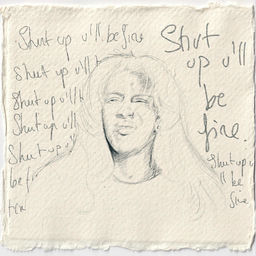 Shut up u'll be fine
Shut up u'll b
Shut up u'll b
Shut up u'll
Shut up u'll
be fi
fin
Shut
up u'll
be
fine.
Shut up u
'll be
fine